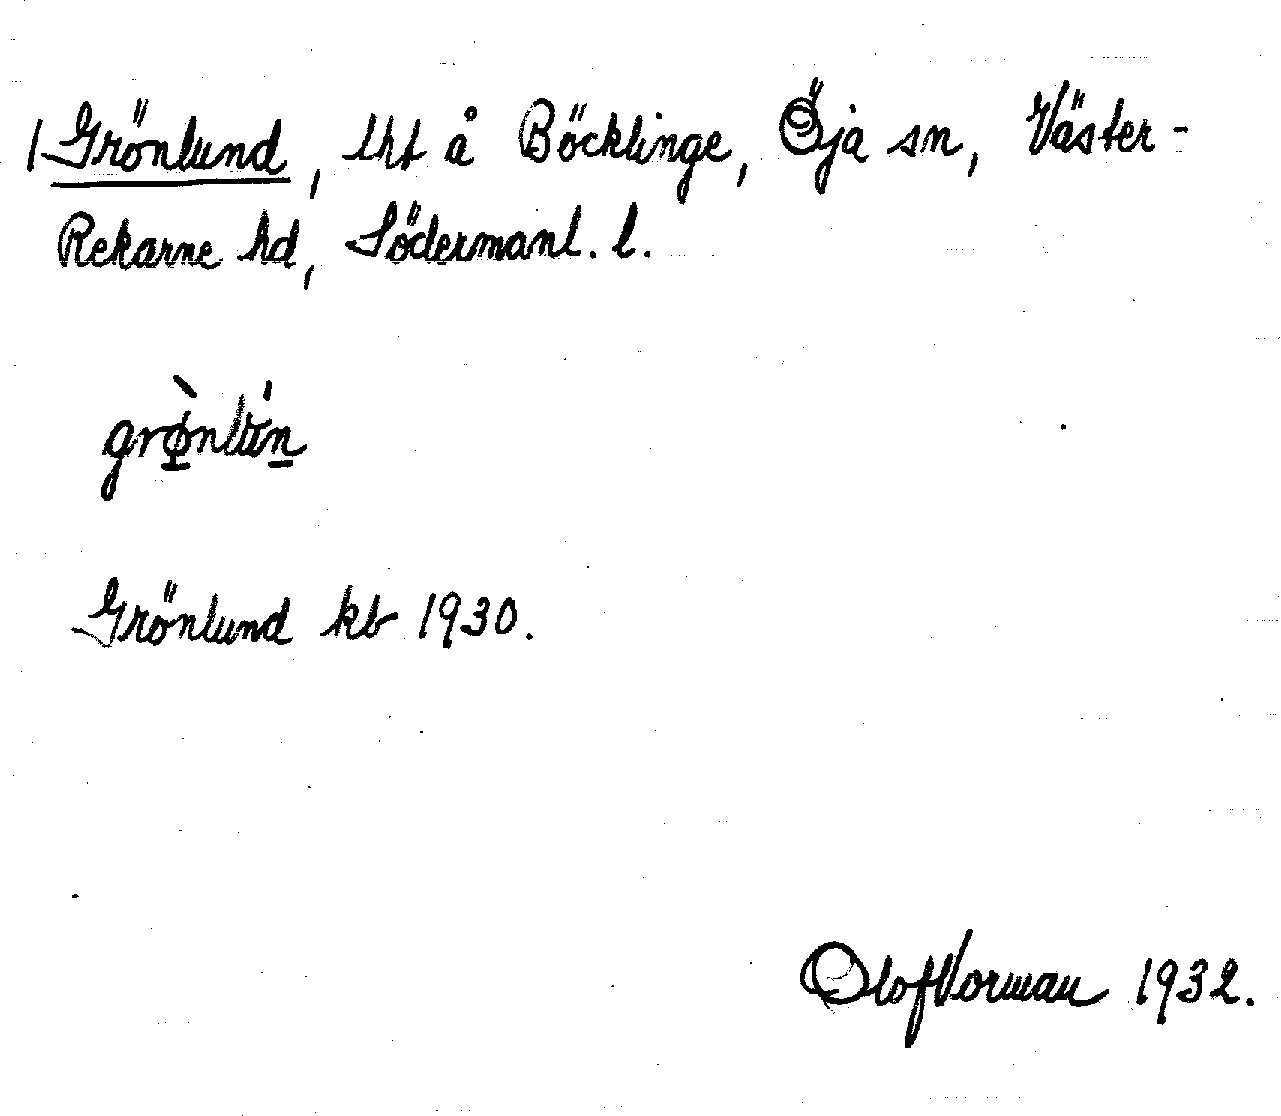 1 Grönlund, lht å Böcklinge, Öja sn, Väster-
Rekarne hd, Södermanl. l.
Grönlund kb 1930.
Olof Vorman 1932.